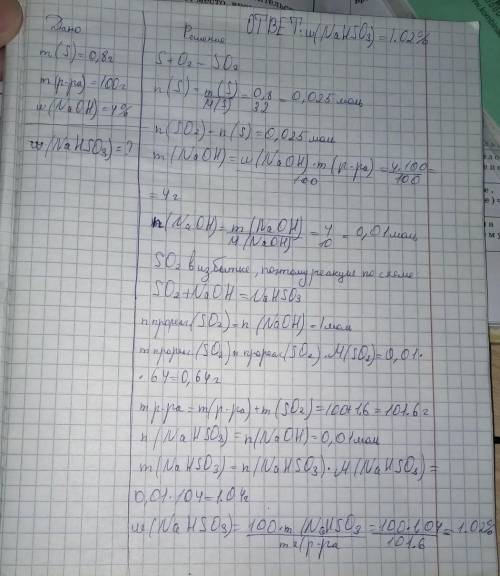 ОТВЕТ: w(NaHSO3)=1.02%
Дано
m(S)=0,8г
m(р-ра)=100г
w(NaOH)=4%
w(NaHSO3)=?
Решение
S+O2=SO2
n(S)=m(S)/M(S)=0,8/32=0,025моль
n(SO2)=n(S)=0,025моль
m(NaOH)=w(NaOH)·m(р-ра)/100=4·100/100=
=4г
n(NaOH)=m(NaOH)/M(NaOH)=4/10=0,01моль
SO2 в избытке, поэтому реакция по схеме
SO2+NaOH=NaHSO3
n прореаг.(SO2)=n(NaOH)=1моль
m прореаг.(SO2)=n прореаг.(SO2)·M(SO2)=0,01·
·64=0,64г
m р-ра=m(р-ра)+m(SO2)=100+1.6=101.6г
n(NaHSO3)=n(NaOH)=0,01моль
m(NaHSO3)=n(NaHSO3)·M(NaHSO3)=
0,01·104=1.04г
w(NaHSO3)=100·m(NaHSO3/m(р-ра=100·1,04/101.6=1.02%